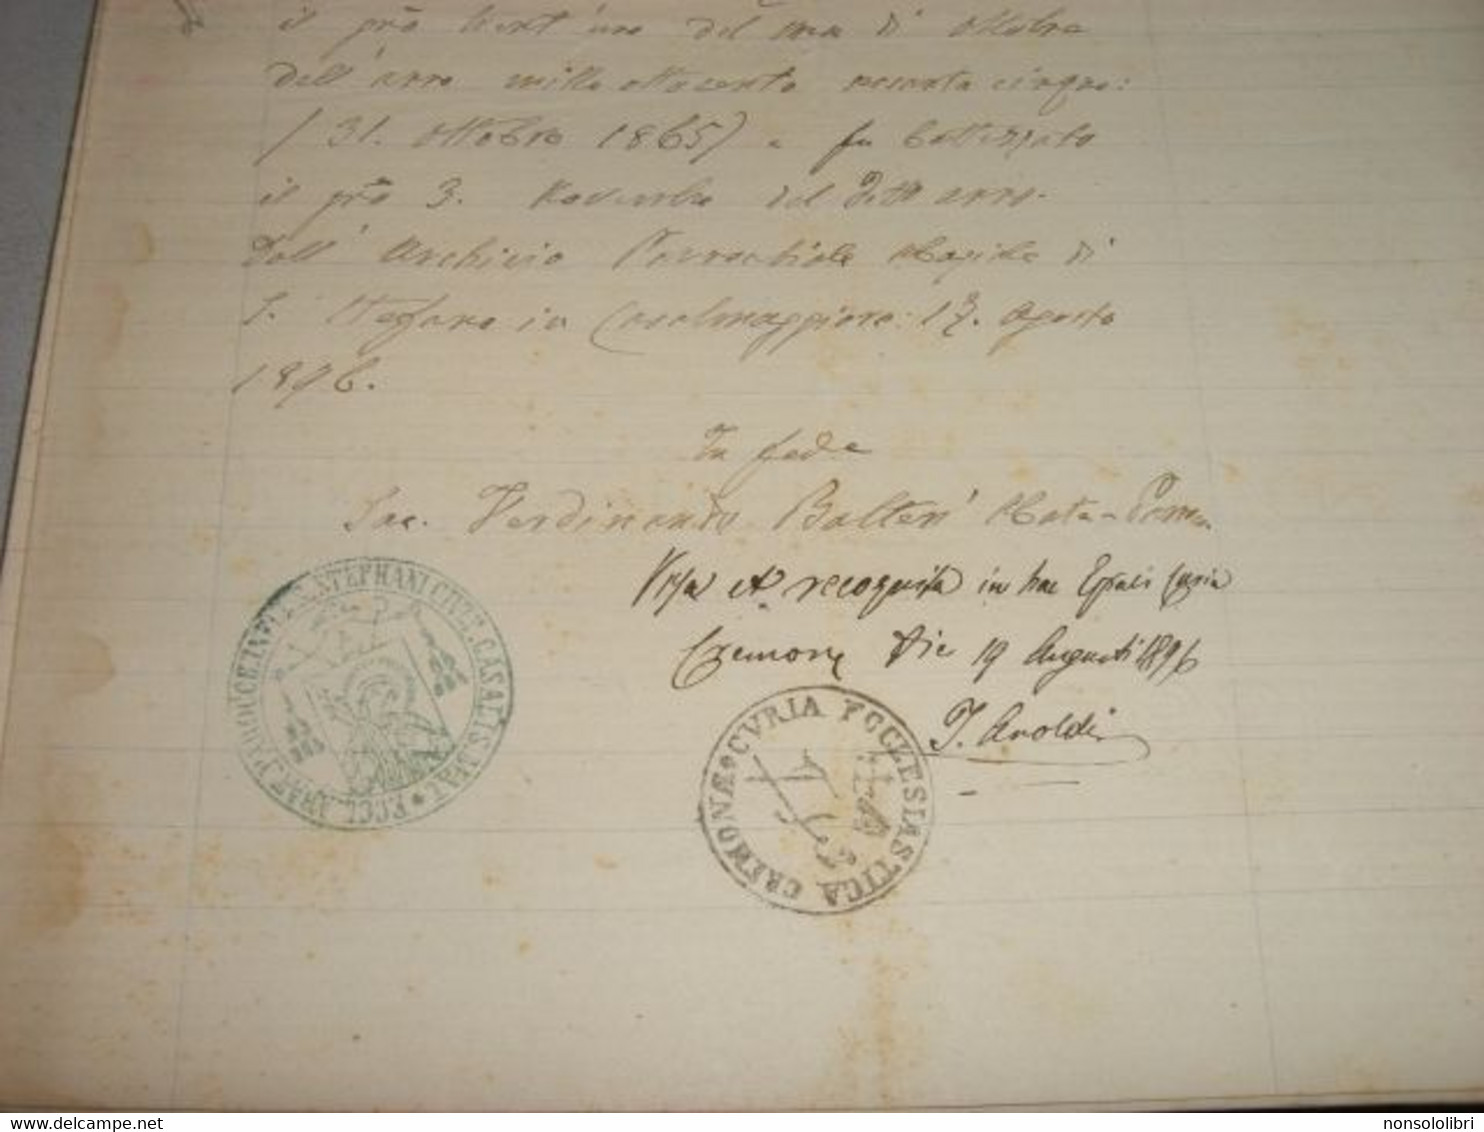 il prõ trent'uno del mese di ottobre
dell'anno mille ottocento sessanta cinque:
(31. ottobre 1865) e fu battezzato
il prõ 3. Novembre del detto anno.
Dall'Archivio Parrocchiale Abaziale di
S. Stefano in Casalmaggiore: 17. Agosto
1896.
In fede
Sac. Ferdinando Abate
Visa et recognita in hac Epali Curia
Cremonæ die 19 Augusti 1896
J. Aroldi
STEPHANI CASALIS MAJ. ECCL.
CVRIA ECCLESIASTICA CREMONÆ
delcampe.net
nonsololibri